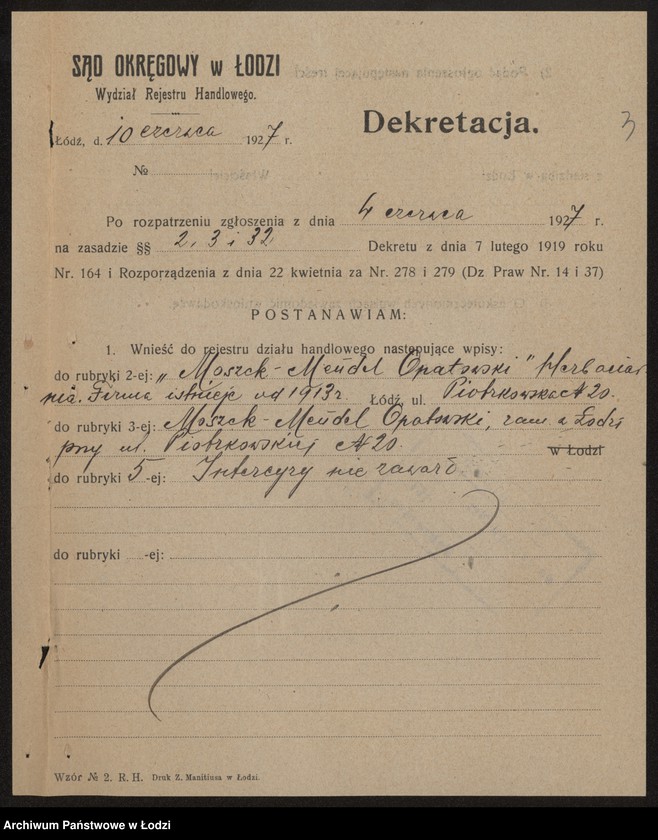 SĄD OKRĘGOWY w ŁODZI
Wydział Rejestru Handlowego.
Łódź, d. 10 czerwca 1927 r.
Dekretacja.
3
№
Po rozpatrzeniu zgłoszenia z dnia 4 czerwca 1927 r.
na zasadzie §§ 2, 3 i 32 Dekretu z dnia 7 lutego 1919 roku
Nr. 164 i Rozporządzenia z dnia 22 kwietnia za Nr. 278 i 279 (Dz Praw Nr. 14 i 37)
POSTANAWIAM:
1. Wnieść do rejestru działu handlowego następujące wpisy:
do rubryki 2-ej: „Moszek-Mendel Opatowski" Herbaciar
nia. Firma istnieje od 1913 r. Łódź, ul. Piotrkowska № 20.
do rubryki 3-ej: Moszek-Mendel Opatowski, zam. w Łodzi
przy ul. Piotrkowskiej № 20. w Łodzi
do rubryki 5-ej: Intercyzy nie zawarł
do rubryki -ej:
Wzór № 2. R. H. Druk Z. Manitiusa w Łodzi.
Archiwum Państwowe w Łodzi